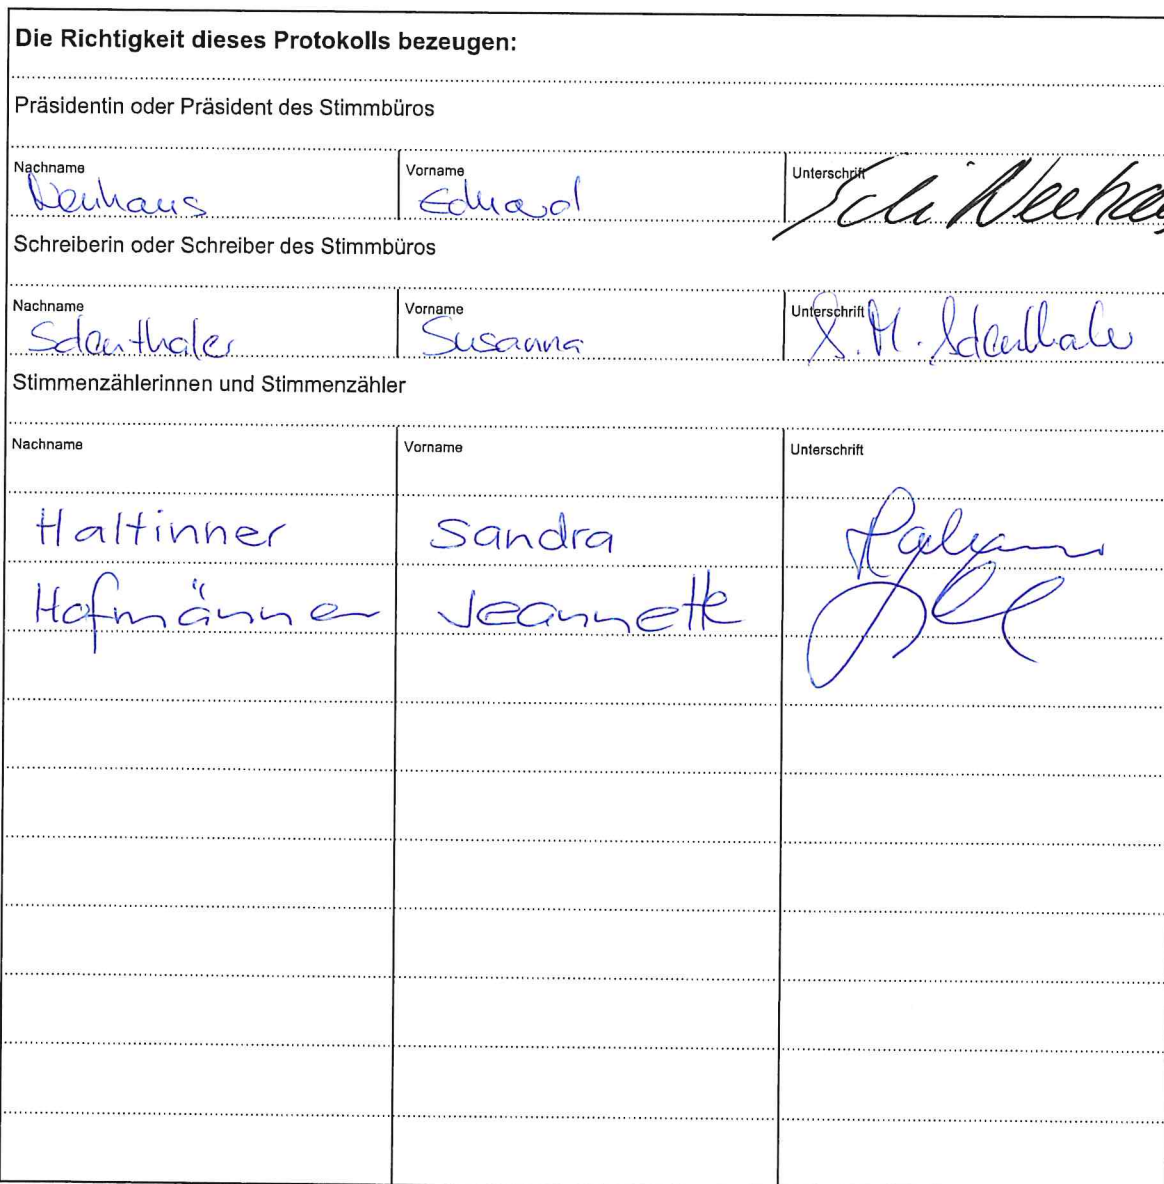 Die Richtigkeit dieses Protokolls bezeugen:
Präsidentin oder Präsident des Stimmbüros
Nachname Vorname Unterschrift
Neuhaus Eduard Edi Neuhaus
Schreiberin oder Schreiber des Stimmbüros
Nachname Vorname Unterschrift
Susanna S. M.
Stimmenzählerinnen und Stimmenzähler
Nachname Vorname Unterschrift
Haltinner Sandra
Hofmänner Jeannette